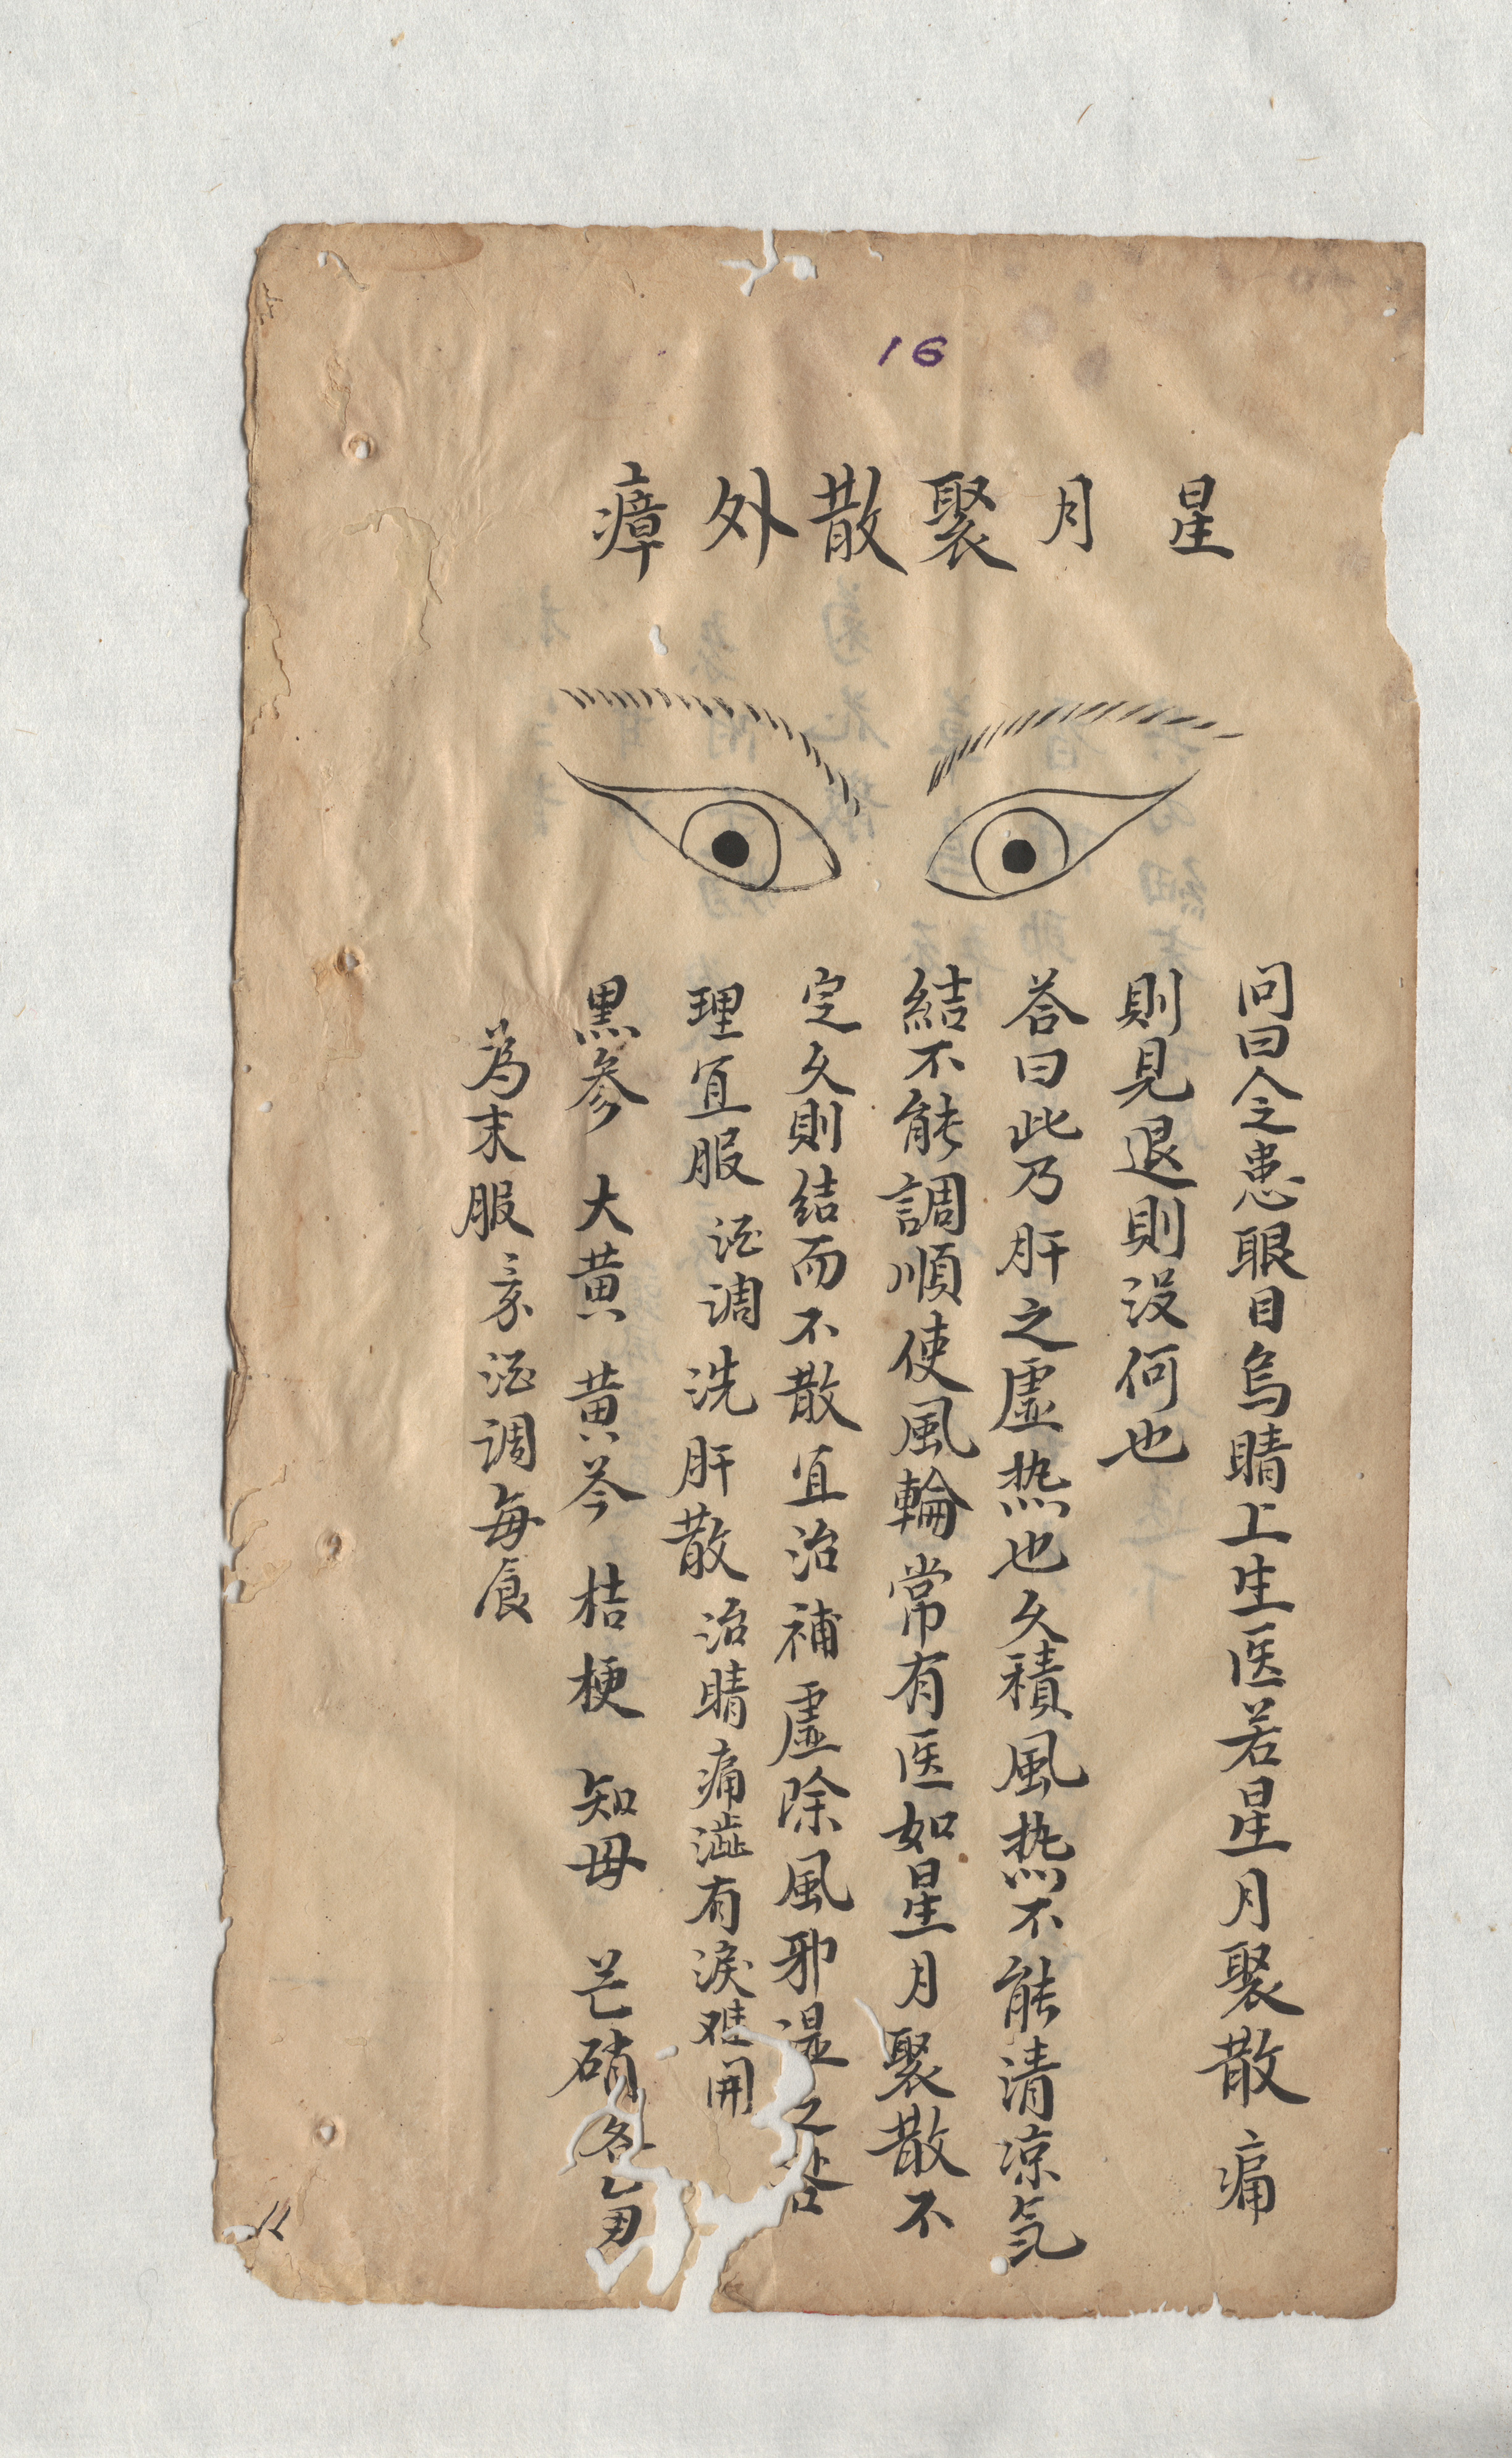 16
星月聚散外瘴
问曰今患眼目乌睛上生医若星月聚散痛
則見退則没何也
荅曰此乃肝之虚热也久積風热不能清凉氣
結不能調順使風輪常有医如星月聚散不
定久則结而不散宜治補虚除風邪湿之
理宜服 酒调洗肝散治睛痛澁有淚难開
黒參 大黄 黄芩 桔梗 知母 芒硝各
為末服 酒调每食